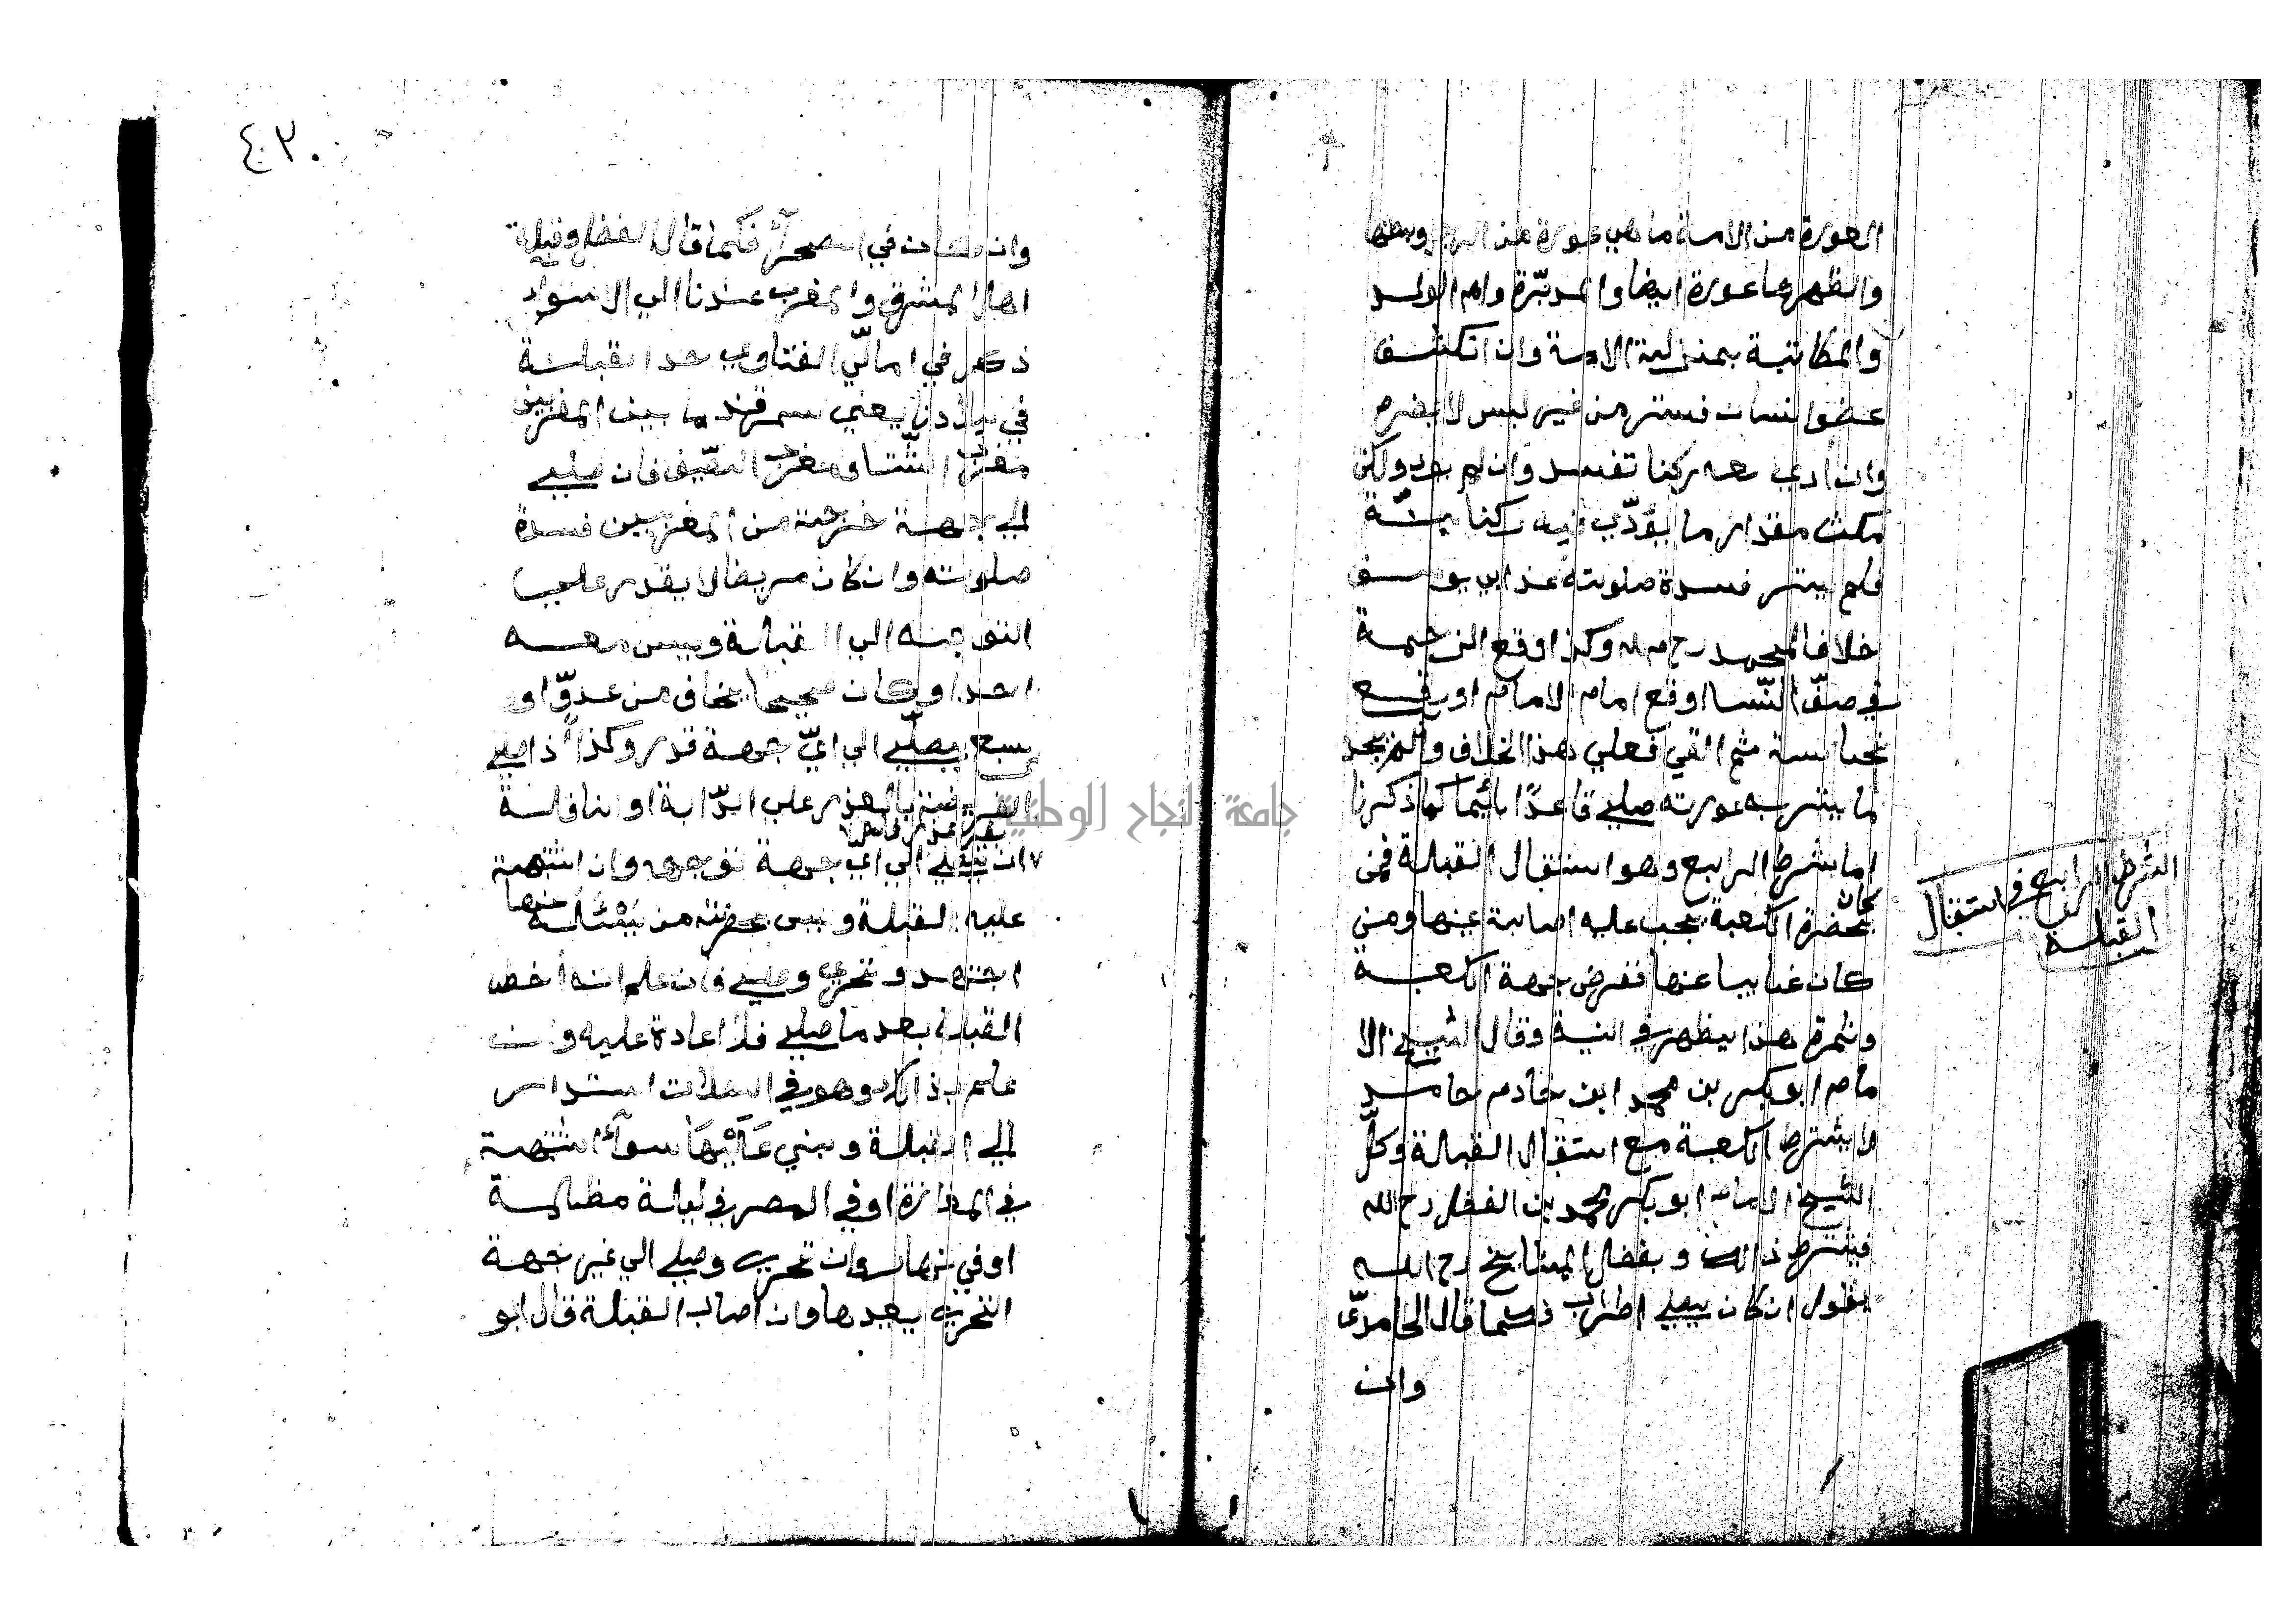 العورة من الامة ما هي عورة من الرجل وبطنها
والظهرها عورة ايضا والمدبّرة وام الولد
والمكاتبة بمنزلة الامة وان انكشف
عضو انسان فستر من غير لبس لا يضره
وان ادي معه ركنا تفسد وان لم يود ولكن
مكث مقدار ما يؤدّي فيه ركنا بسنّة
فلم يستر فسدة صلوته عند ابي يوسف
خلافا لمحمد رح مه وكذا وقع الزحمة
في صفّ النّسا او قع امام الامام او رفع
نجاسة ثم القي فعلي هذا الخلاف والمن يجد
ما يستر به عورته صلي قاعدًا بائيما كما ذكرنا
اما شرط الرابع وهو استقبال القبلة فمن
كان بحضرة الكعبة يجب عليه اصابة عينها ومن
كان غايبا عنها ففرض جهة الكعبة
وثمرة هذا يظهر في النية وقال الشيخ الا
مام ابو بكر بن محمد ابن حامد
لا يشترط الكعبة مع استقبال القبلة وكلّ
الشيخ الامام ابو بكر محمد بن الفضل رح الله
فيشترط ذالك وبفضل المشايخ رح الله
يقول ان كان يصلي فكما قال الحامدىّ
وان
الشرط الرابع في استقبال
القبلة
٤٢٠
وان كان في الصحرآء فكما قال الفضل وقبلة
اهل المشرق والمغرب عندنا الي الاسواد
ذكر في امالّي الفتاوي حد القبلة
في بلادنا يعني سمرقند ما بين المغربين
مغرب الشّتا ومغرب الصّيف فان صلي
الي جهة خرجة من المغربين فسدة
صلوته وان كان مريضا لا يقدر علي
التوجه الي القبلة وليس معه
احد او كان صحيحا يخاف من عدوّ او
سبع يصلّي الي ايّ جهة قدر وكذا اذا صلي
الفريضة بالعذر علي الدّابة او النافلة
بغير عذر
ان يصلي الي ايّ جهة توجه وان اشتبهة
عليه القبلة وليس بحضرته من يسئله عنها
اجتهد وتحري وصلي فان علم انه اخط
القبلة بعد ما صلي فلا اعادة عليه وان
علم ذالك وهو في الصلات استدار
الي القبلة وبني عَلَيْهَا سوآء اشتبهة
في المفازة او في المصر في ليلة مظلمة
او في نهار وان تحري وصلي الي غير جهة
التحري يعيدها وان اصاب القبلة قال ابو
جامعة النجاح الوطنية